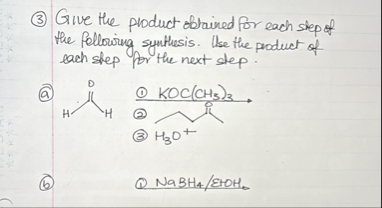 ③ Give the product obtained for each step of
the following synthesis. Use the product of
each step for the next step.
ⓐ O
H H
① KOC(CH3)3
② O
③ H3O+
ⓑ ① NaBH4/EtOH